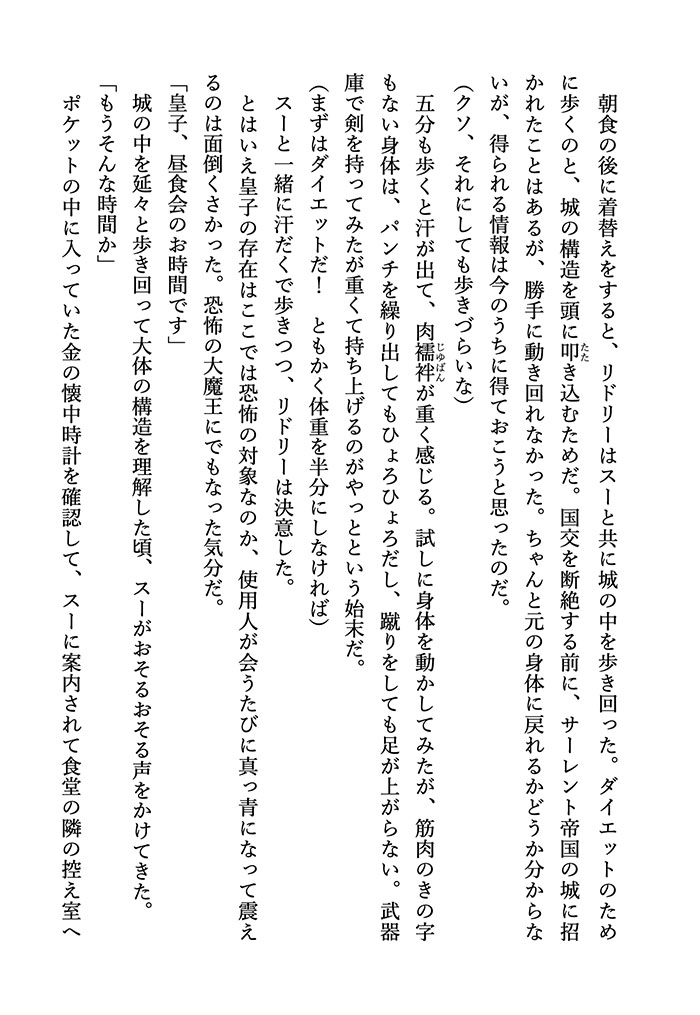 朝食の後に着替えをすると、リドリーはスーと共に城の中を歩き回った。ダイエットのため
に歩くのと、城の構造を頭に叩き込むためだ。国交を断絶する前に、サーレント帝国の城に招
かれたことはあるが、勝手に動き回れなかった。ちゃんと元の身体に戻れるかどうか分からな
いが、得られる情報は今のうちに得ておこうと思ったのだ。
（クソ、それにしても歩きづらいな）
五分も歩くと汗が出て、肉襦袢が重く感じる。試しに身体を動かしてみたが、筋肉のきの字
もない身体は、パンチを繰り出してもひょろひょろだし、蹴りをしても足が上がらない。武器
庫で剣を持ってみたが重くて持ち上げるのがやっとという始末だ。
（まずはダイエットだ！　ともかく体重を半分にしなければ）
スーと一緒に汗だくで歩きつつ、リドリーは決意した。
とはいえ皇子の存在はここでは恐怖の対象なのか、使用人が会うたびに真っ青になって震え
るのは面倒くさかった。恐怖の大魔王にでもなった気分だ。
「皇子、昼食会のお時間です」
城の中を延々と歩き回って大体の構造を理解した頃、スーがおそるおそる声をかけてきた。
「もうそんな時間か」
ポケットの中に入っていた金の懐中時計を確認して、スーに案内されて食堂の隣の控え室へ